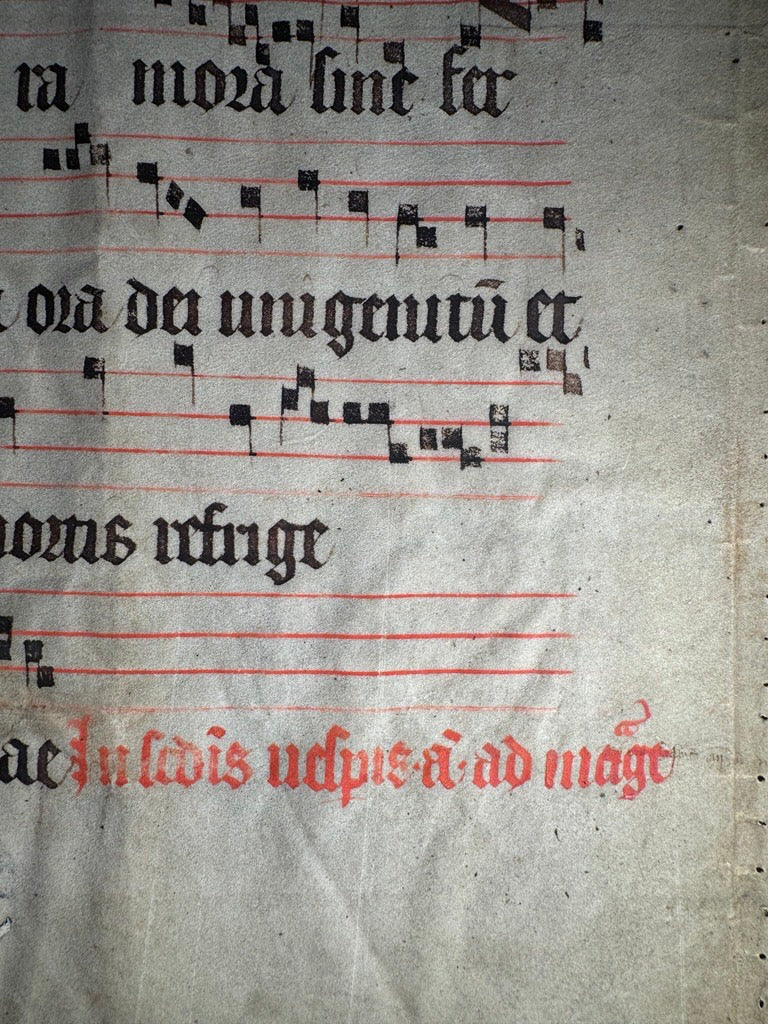 ra mora sine fer
ora dei unigenitū et
mortis refrige
ae In scd̄is uesp̄is · ā · ad